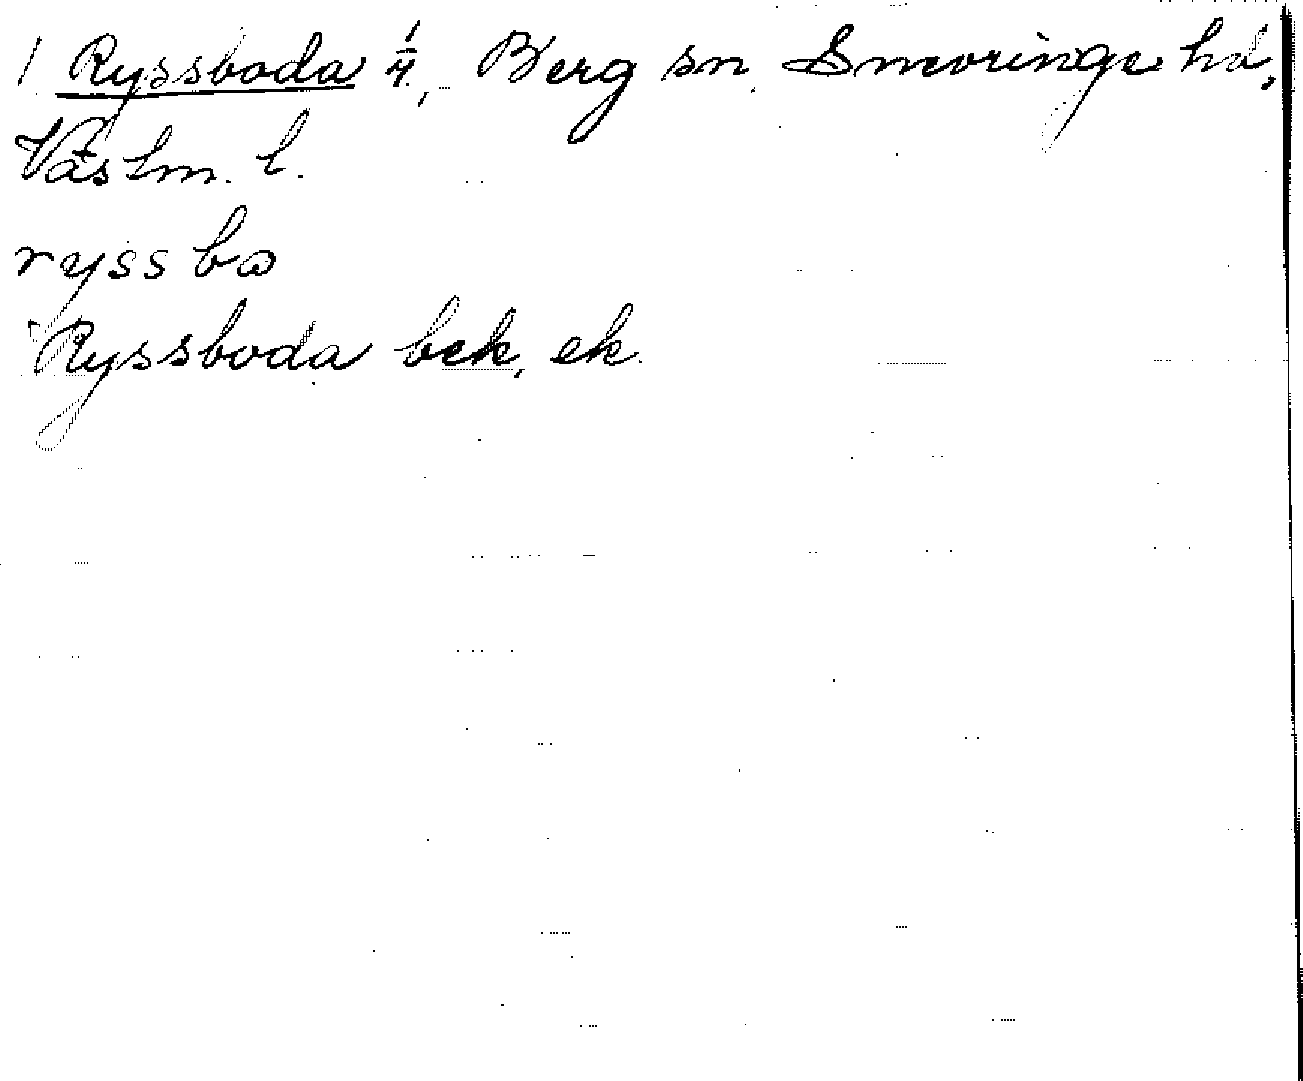 1 Ryssboda 1/4, Berg sn Snevringe hd,
Västm. l.
ryssbω
Ryssboda bek, ek.